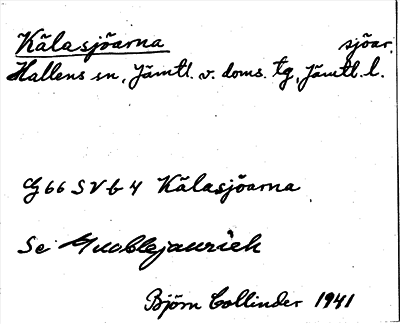 Kälasjöarna sjöar.
Hallens sn, Jämtl. v. doms. tg, Jämtl. l.
G 66 S V b 4 Kälasjöarna
Se Guoblejaurieh
Björn Collinder 1941